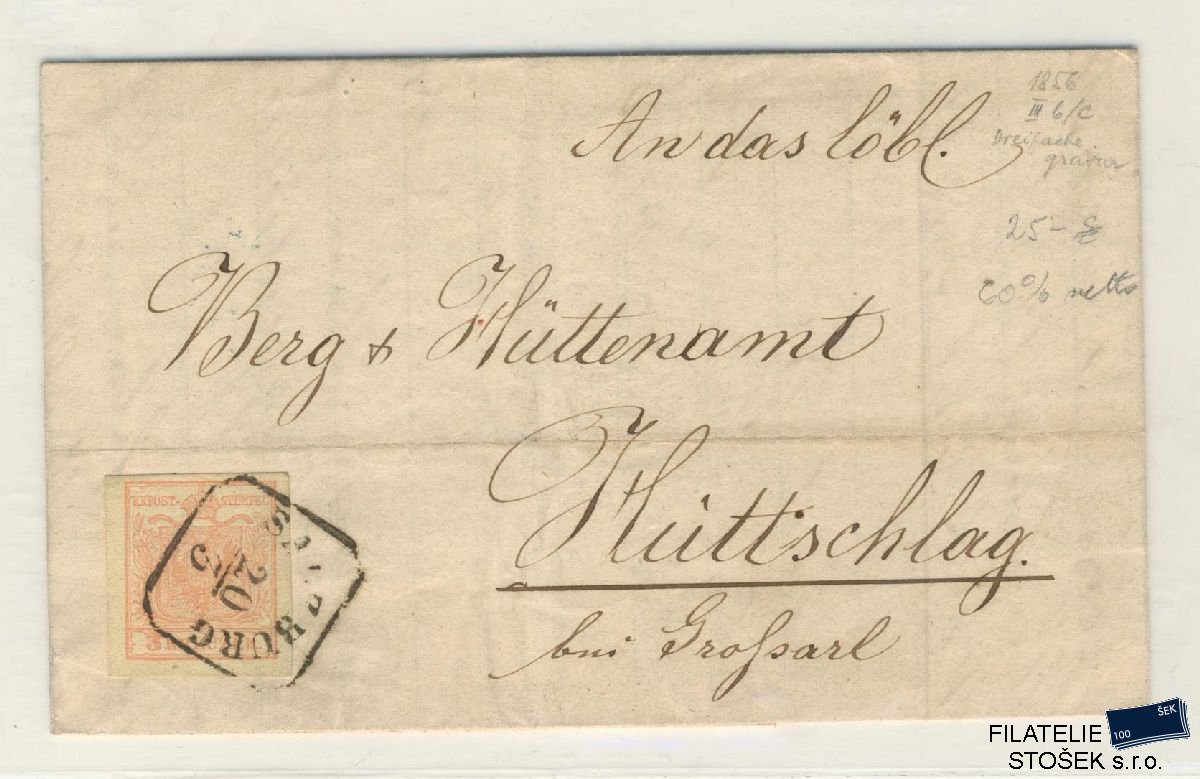 An das löbl.
1856
III 6/c
Dreifache
gravur
25-
60% netto
Berg & Hüttenamt
Hüttschlag.
bei Großarl
KKPOST-STEMPEL
SALZBURG
20
ŠEK
100
FILATELIE
STOŠEK s.r.o.